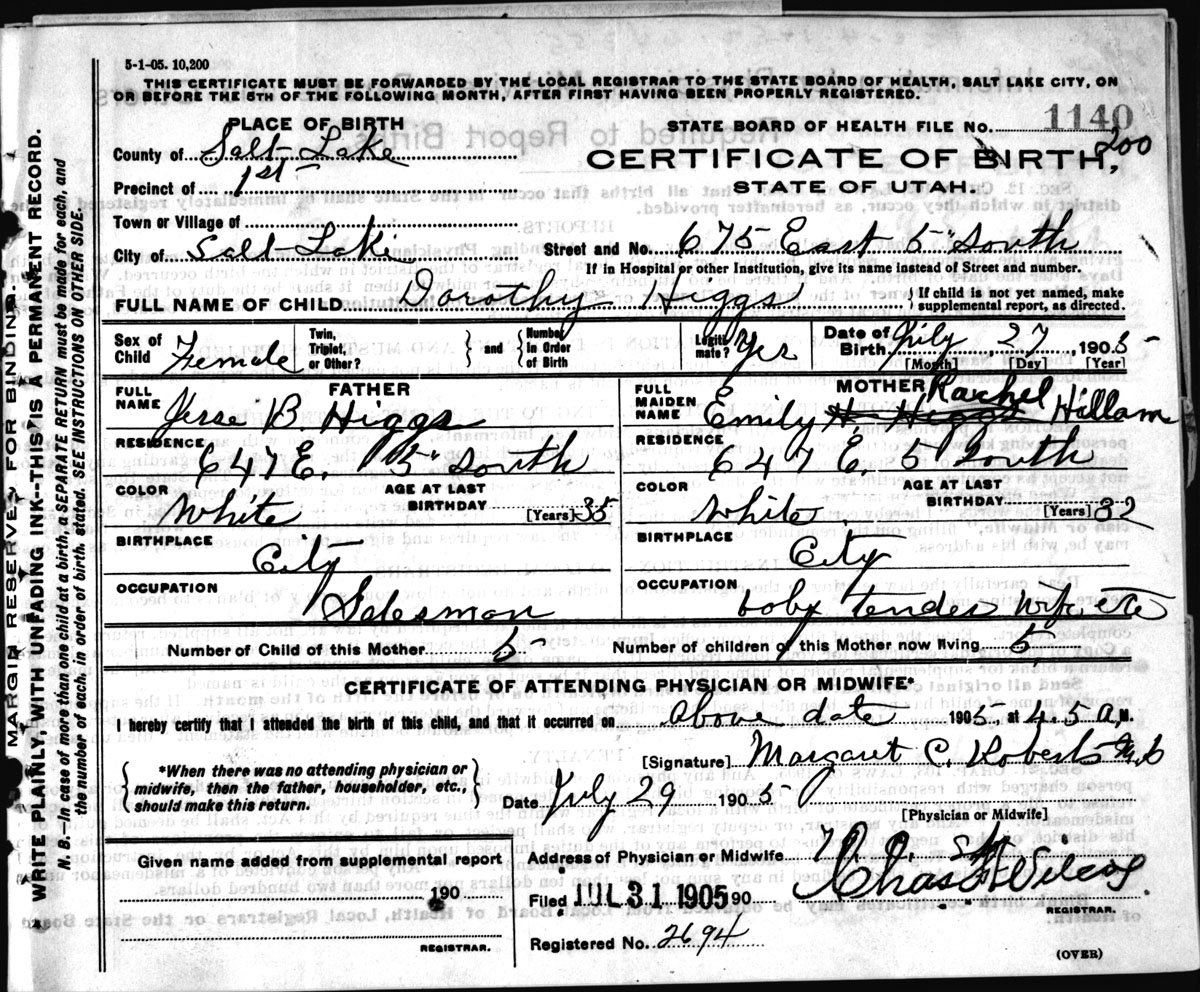 5-1-05. 10,200
THIS CERTIFICATE MUST BE FORWARDED BY THE LOCAL REGISTRAR TO THE STATE BOARD OF HEALTH, SALT LAKE CITY, ON
OR BEFORE THE 5TH OF THE FOLLOWING MONTH, AFTER FIRST HAVING BEEN PROPERLY REGISTERED.
PLACE OF BIRTH
STATE BOARD OF HEALTH FILE No. 1140
200
County of Salt Lake
CERTIFICATE OF BIRTH,
Precinct of 1st
STATE OF UTAH.
Town or Village of
City of Salt Lake
Street and No. 675 East 5" South
If in Hospital or other Institution, give its name instead of Street and number.
FULL NAME OF CHILD Dorothy Higgs
} If child is not yet named, make supplemental report, as directed.
Sex of Child Female
Twin, Triplet, or Other? } and { Number In Order of Birth
Legiti mate? Yes
Date of Birth July 27 1905
[Month] [Day] [Year]
FATHER
FULL NAME Jesse B Higgs
RESIDENCE 647 E. 5" South
COLOR White
AGE AT LAST BIRTHDAY 35 [Years]
BIRTHPLACE City
OCCUPATION Salesman
MOTHER
FULL MAIDEN NAME Emily H Higgs Rachel Hillam
RESIDENCE 647 E. 5" South
COLOR White.
AGE AT LAST BIRTHDAY [Years] 32
BIRTHPLACE City
OCCUPATION boby tender wife etc
Number of Child of this Mother 5
Number of children of this Mother now living 5
CERTIFICATE OF ATTENDING PHYSICIAN OR MIDWIFE*
I hereby certify that I attended the birth of this child, and that it occurred on above date 1905 at 4.5 A.M.
{ *When there was no attending physician or midwife, then the father, householder, etc., should make this return. }
[Signature] Margaret C. Roberts M.D
Date July 29 1905
[Physician or Midwife]
Given name added from supplemental report
190
REGISTRAR.
Address of Physician or Midwife
Filed JUL 31 1905 90
Chas Wilcox
REGISTRAR.
Registered No. 2694
(OVER)
MARGIN RESERVED FOR BINDING
WRITE PLAINLY, WITH UNFADING INK--THIS IS A PERMANENT RECORD.
N. B.--In case of more than one child at a birth, a SEPARATE RETURN must be made for each, and
the number of each, in order of birth, stated. SEE INSTRUCTIONS ON OTHER SIDE.